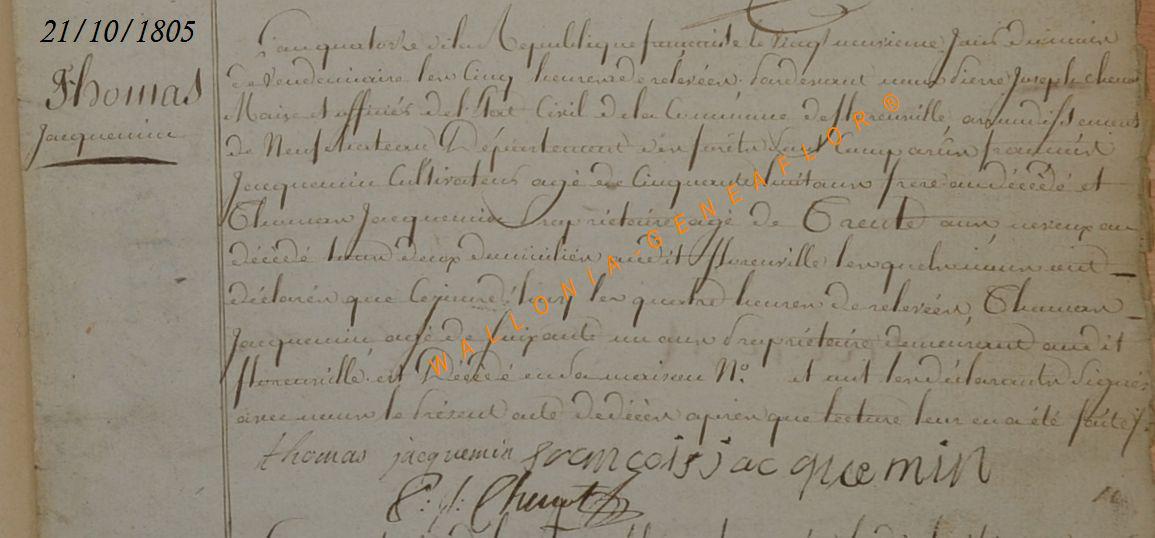 21/10/1805
Thomas
Jacquemin
L'an quatorze de la Republique francaise le vingt neuvieme Jour du mois
de Vendemiaire les Cinq heures de relevées, pardevant nous Pierre Joseph
Maire et officiés de l'Etat Civil de la Commune de florenville arrondissement
de Neufchateau Département des forêts Sont Comparûs françois
Jacquemin Cultivateur agé de Cinquante huit ans frere au décédé et
Thomas Jacquemin Propriétaire agé de Trente ans neveux au
décédé tous deux domiciliés audit florenville lesquels nous ont
déclarés que Cejourd'huy les quatre heures de relevées, Thomas
Jacquemin agé de soixante un ans Propriétaire demeurant audit
florenville est Décédé en Sa maison N.° et ont les déclarants Signés
avec nous le Présent acte de décès après que lecture leur en a été faite
thomas jacquemin françois jacquemin
P: J:
WALLONIA-GENEAFLOR®